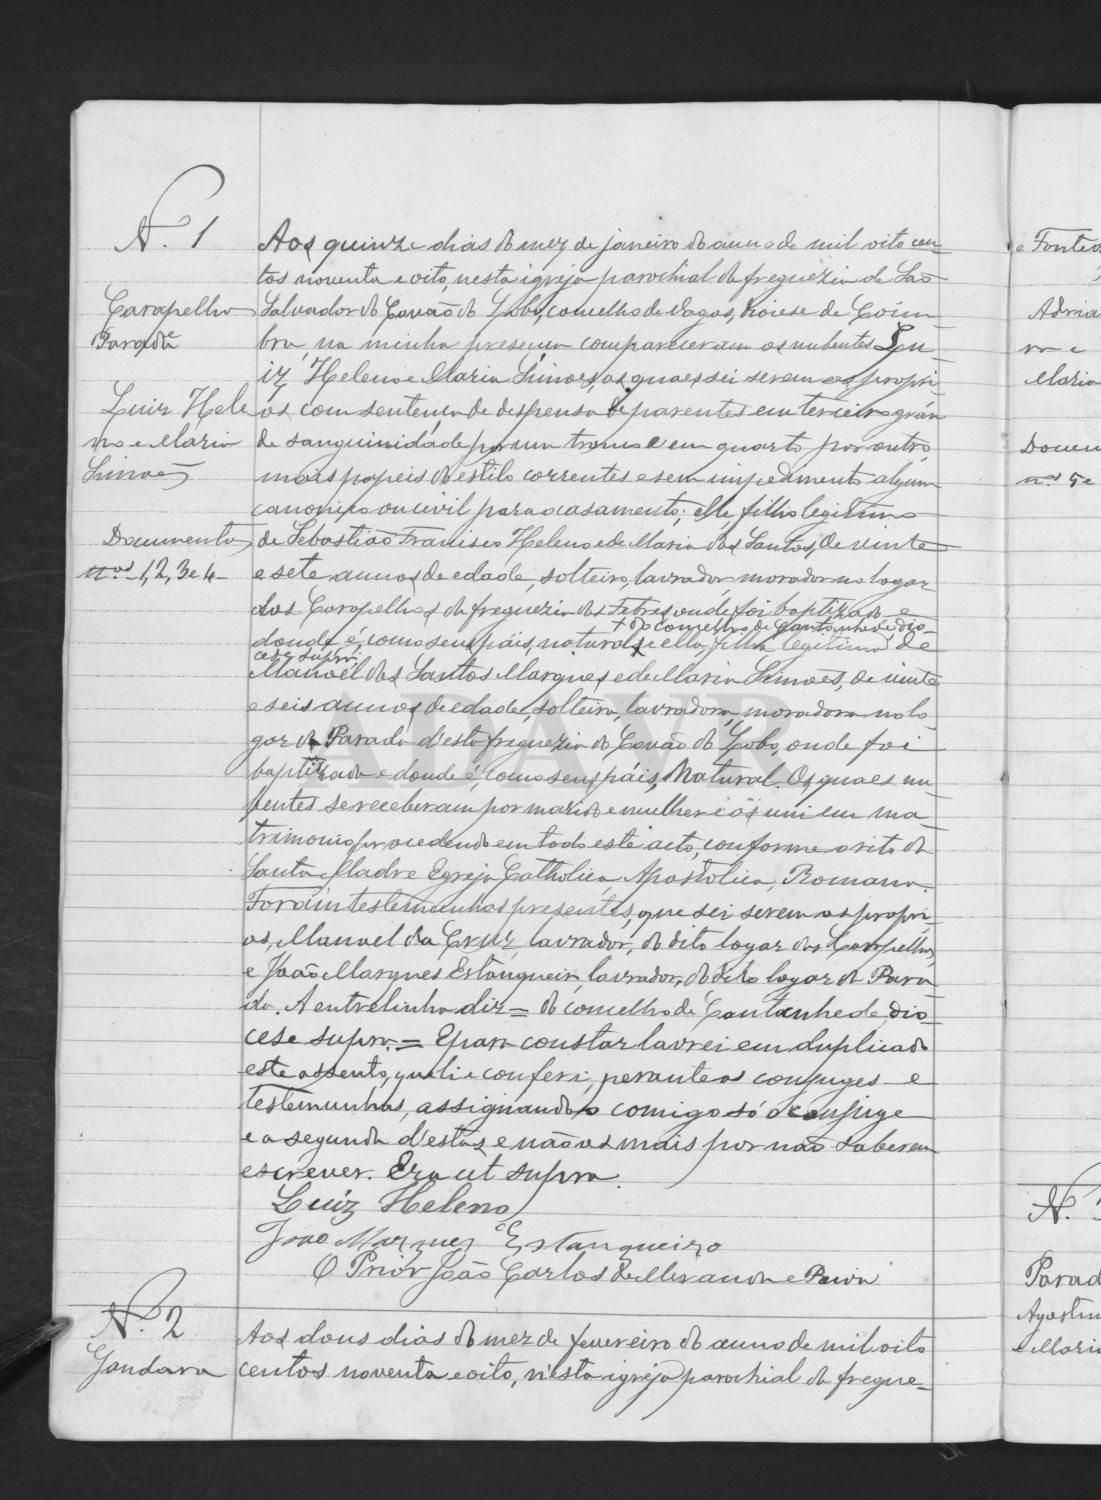 N. 1
Carapelhos
Parada
Luiz Hele
no e Maria
Simões
Documentos
nos 1, 2, 3 e 4
Aos quinze dias do mez de janeiro do anno de mil oito cen-
tos noventa e oito, nesta igreja parochial da freguezia de São
Salvador do Covão do Lobo, concelho de Vagos, diocese de Coim-
bra, na minha presença compareceram os nubentes Lu-
iz Heleno e Maria Simões, os quaes sei serem os propri-
os, com sentença de dispensa de parentes em terceiro gráu
de sanguinidade por um tronco e em quarto por outro,
mais papeis do estilo correntes e sem impedimento algum
canonico ou civil para o casamento; elle, filho legitimo
de Sebastião Francisco Heleno e de Maria dos Santos, de vinte
e sete annos de edade, solteiro, lavrador, morador no logar
dos Carapelhos da freguezia dos Febres onde foi baptizado e
+ do concelho de Cantanhede, dio-
donde é, como seus páis, natural, e ella, filha legitima de
cese supra,
Manoel dos Santos Marques e de Maria Simões, de vinte
e seis annos de edade, solteira, lavradora, moradora no lo-
gar da Parada d'esta freguezia do Covão do Lobo, onde foi
baptizada e donde é, como seus páis, natural. Os quaes nu-
bentes se receberam por marido e mulher e os uni em ma-
trimonio procedendo em todo este acto, conforme o rito da
Santa Madre Egreja Catholica, Apostolica, Romana.
Foram testemunhas presentes, que sei serem os propri-
os, Manuel da Cruz, lavrador, do dito logar dos Carapelhos,
e João Marques Estanqueiro, lavrador, do dito logar da Para-
da. A entrelinha diz = do concelho de Cantanhede, dio-
cese supra. = E para constar lavrei em duplicado
este assento, que li e conferi, perante os conjuges e
testemunhas, assignando comigo só o conjuge
e a segunda d'estas e não os mais por não saberem
escrever. Era ut supra.
Luiz Heleno
João Marques Estanqueiro
O Prior João Carlos de Miranda e Paiva
N. 2
Gandara
Aos dous dias do mez de fevereiro do anno de mil oito
centos noventa e oito, n'esta igreja parochial da fregue-
e Fonte
Adria
Maria
Docum
nos 5 e
N.
Parad
Agostin
e Mari
APAVR